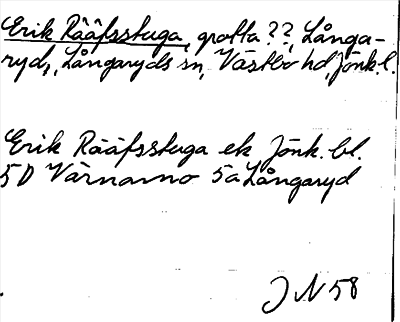 Erik Rääfsstuga, grotta??, Långa-
ryd, Långaryds sn, Västbo hd, Jönk.l.
Erik Rääfsstuga ek Jönk. bl.
5D Värnamo 5a Långaryd
J N 58